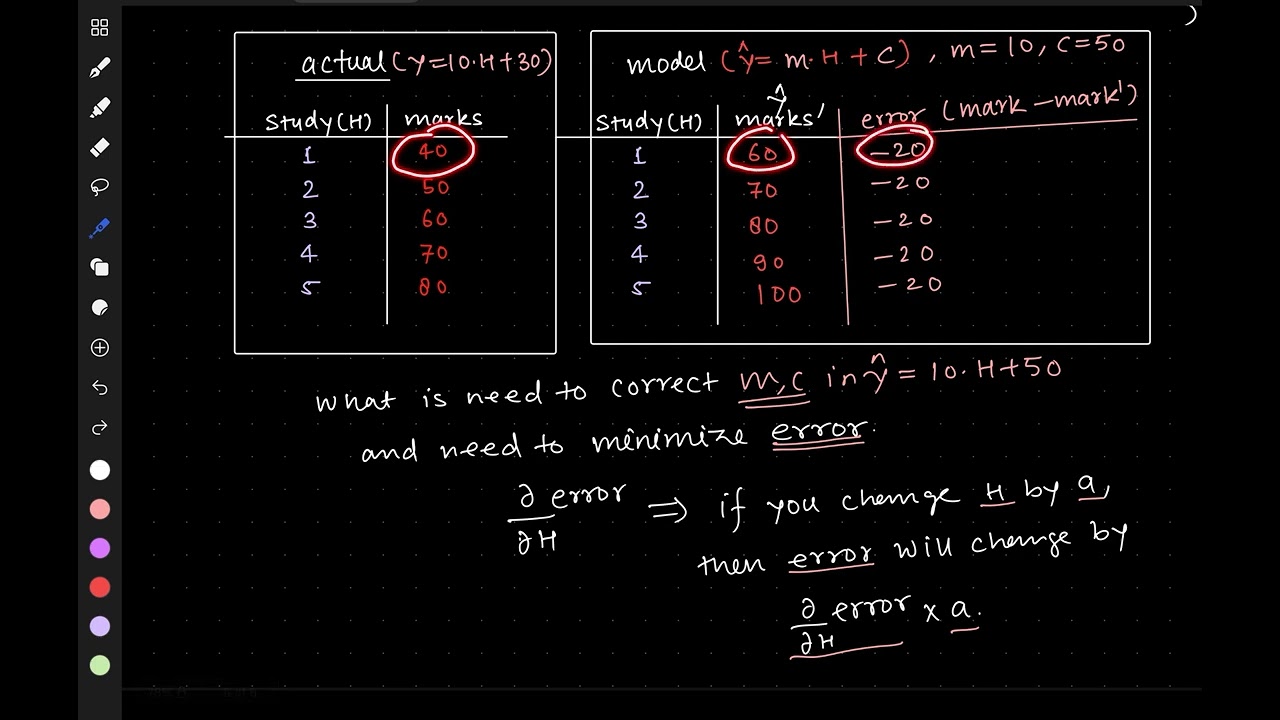 actual (Y=10.H+30)
Study(H) marks
1 40
2 50
3 60
4 70
5 80
model (ŷ= m.H + C) , m=10, C=50
ŷ
Study(H) marks' error (mark - mark')
1 60 -20
2 70 -20
3 80 -20
4 90 -20
5 100 -20
What is need to correct m,c in ŷ = 10.H+50
and need to minimize error.
∂ error
∂H
⇒ if you change H by a,
then error will change by
∂ error x a.
∂H